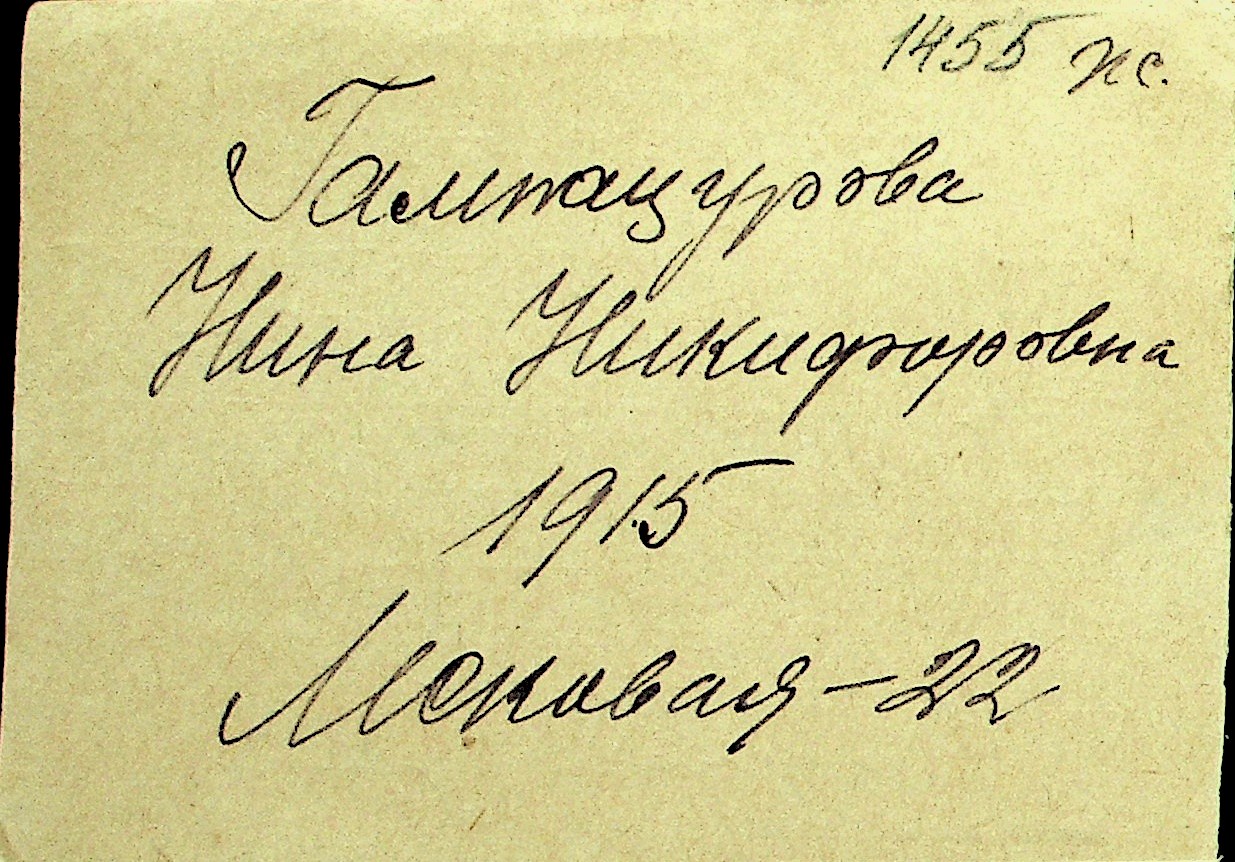 1455 пс.
Гампацурова
Нина Никифоровна
1915
Моковая-22